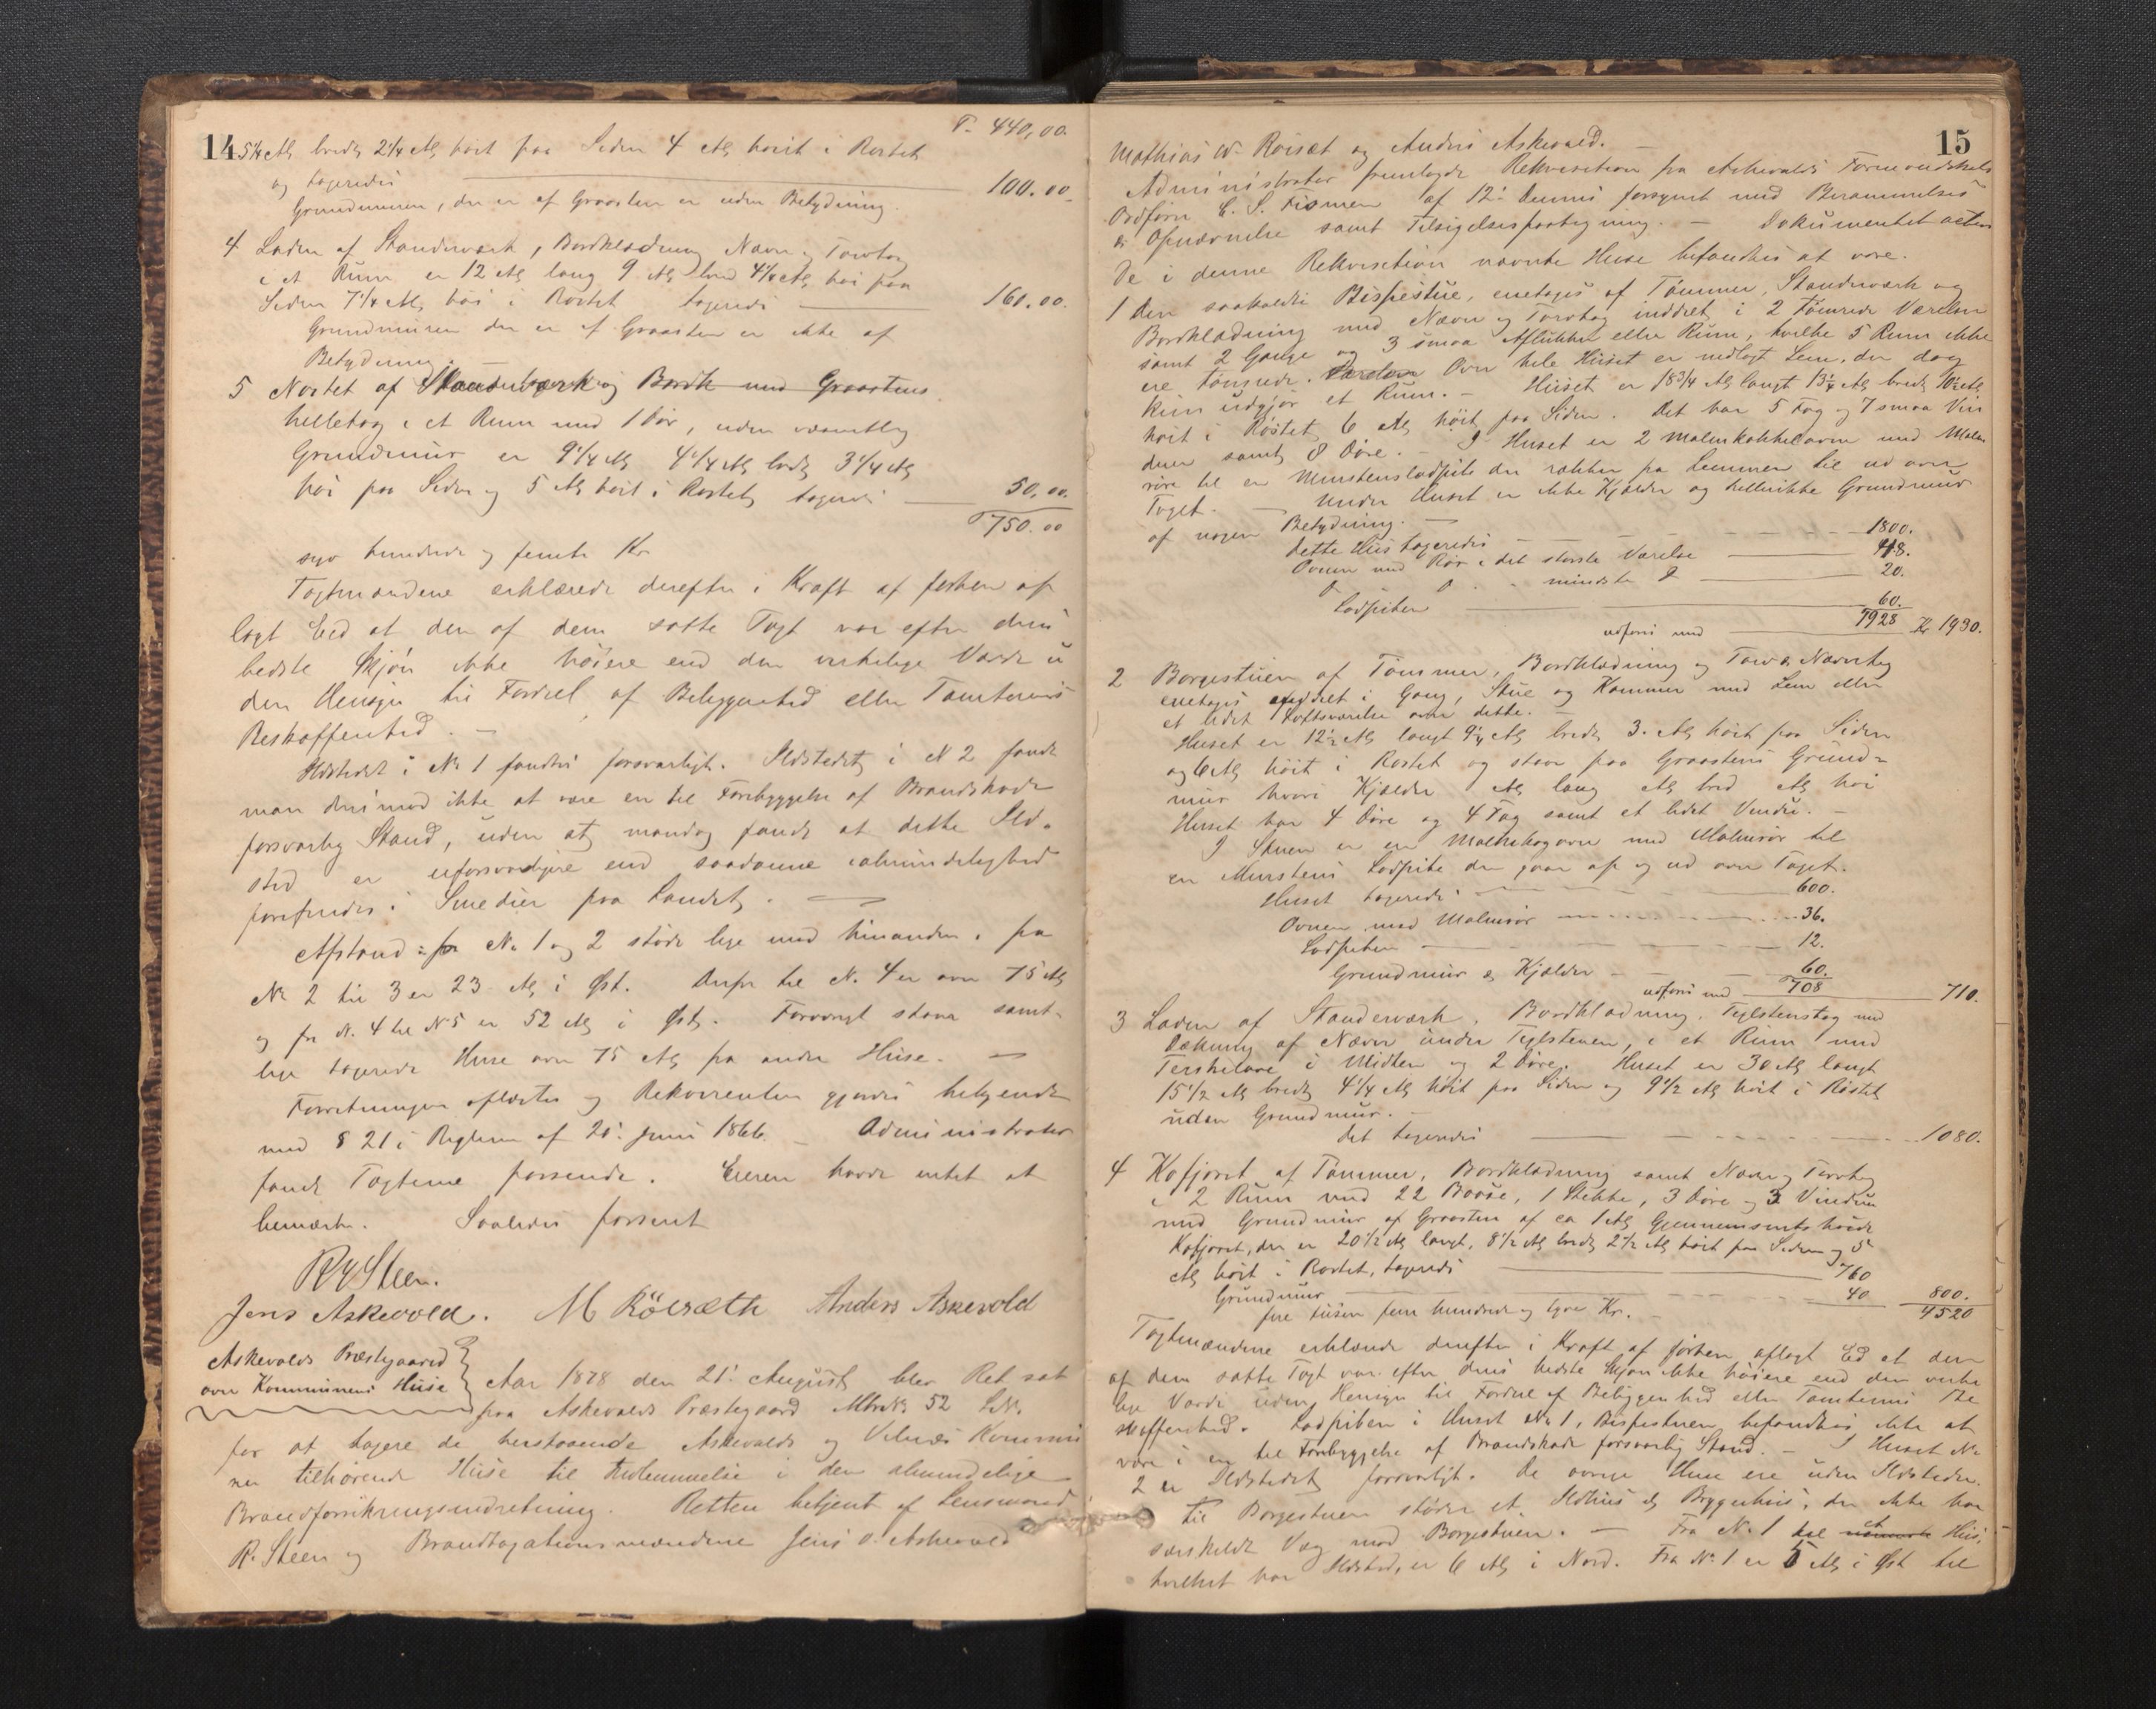 14
T. 440,00.
5¼ Al bredt 2¼ Al høit paa Siden 4 Al høit i Røstet
og taxeredes 100.00.
Grundmuren, der er af Graasten er uden Betydning.
4 Laden af Standerværk, Bordklædning Næver og Torvtag
i et Rum er 12 Al lang 9 Al bred 4¼ Al høi paa
Siden 7¼ Al høi i Røstet taxeredes 160.00.
Grundmuren der er af Graasten er ikke af
Betydning. —
5 Nostet af Standerværk og Bordk med Graastens
helletag i et Rum med 1 Dør, uden væsentlig
Grundmur er 9¼ Al 4¼ Al bredt 3¼ Al
høi paa Siden og 5 Al høit i Røstet taxeredes 50.00.
750.00
syv hundrede og femti Kr
Taxtmændene erklærede derefter i Kraft af forhen af
lagt Eed at den af dem satte Taxt var efter deres
bedste Skjøn ikke høiere end den virkelige Værdi u
den Hensyn til Fordeel af Beliggenhed eller Tomternes
Beskaffenhed. —
Ildstedet i No 1 fandtes forsvarligt. Ildstedet i N 2 fandt
man derimod ikke at være en til Forebyggelse af Brandskade
forsvarlig Stand, uden at man dog fandt at dette Ild-
sted er uforsvarligere end saadanne i almindelighed
forefindes i Smedier paa Landet. —
Afstand: fra No 1 og 2 støde lige mod hinanden. fra
No 2 til 3 er 23 Al i Øst. Derfra til No. 4 er over 75 Al
og fra N. 4 til N 5 er 52 Al i Øst. Forøvrigt staar samt-
lige taxerede Huse over 75 Al fra andre Huse. —
Forretningen oplæstes og Rekvirenten gjordes bekjendt
med § 21 i Reglern af 20. Juni 1866. — Administrator
fandt Taxterne passende. Eieren havde intet at
bemærke. Saaledes passeret
R Steen.
Jens Askevold. M Röisæth Anders Askevold
Askevolds Præstegaard
over Kommunens Huse
Aar 1878 den 21. August blev Ret sat
paa Askevolds Præstegaard MtrNo 52 LNo
for at taxere de herstaaende Askevolds og Vilnæs Kommu
ner tilhørende Huse til Indlemmelse i den almindelige
Brandforsikringsindretning. Retten betjent af Lensmand
R. Steen og Brandtaxationsmændene Jens O. Askevold
15
Mathias W. Röisæt og Anders Askevold. —
Administrator fremlagde Rekvisition fra Askevolds Formandskabs
Ordfører E. S. Fismen af 12. Dennes forsynet med Berammelses
& Opnævnelse samt Tilsigelsespaategning. — Dokumentet acten
De i denne Rekvisition nævnte Huse befandtes at være.
1 Den saakaldte Bispestue, enetages af Tømmer, Standerværk og
Bordklædning med Næver og Torvtag inddelt i 2 Tømrede Værelser
samt 2 Gange og 3 smaa Aflukker eller Rum, hvilke 5 Rum ikke
ere tømrede. Over hele Huset er nedlagt Lem, der dog
kun udgjør et Rum. — Huset er 18¾ Al langt 13¼ Al bredt 10½ Al
høit i Røstet 6 Al høit paa Siden. Det har 5 Fag og 7 smaa Vin
duer samt 8 Døre. — I Huset er 2 Malmkakkelovne med Malm
røre til en Murstensladpibe der rækker fra Lemmen til ud over
Taget. — Under Huset er ikke Kjælder og hellerikke Grundmur
af nogen Betydning. —
dette Hus taxeredes 1800.
Ovnen med Rør i det største Værelse 48.
D D mindste D 20.
Ladpiben 60.
1928
udføres med Kr 1930.
2 Borgestuen af Tømmer, Bordklædning og Torv & Nævertag
enetages inddelt i Gang, Stue og Kammer med Lem eller
et lidet Loftsværelse over dette. —
Huset er 12½ Al langt 9¼ Al bredt 3. Al høit paa Siden
og 6 Al høit i Røstet og staar paa Graastens Grund=
mur hvori Kjælder Al lang Al bred Al høi
Huset har 4 Døre og 4 Fag samt et lidet Vindu. —
I Stuen er en Malmkogovn med Malmrør til
en Murstens Ladpibe der gaar op og ud over Taget.
Huset taxeredes 600.
Ovnen med Malmrør 36.
Ladpiben 12.
Grundmur & Kjælder 60.
708
udføres med 710.
3 Laden af Standerværk, Bordklædning, Teglstenstag med
Dækning af Næver under Teglstenen, i et Rum med
Terskelave i Midten og 2 Døre. Huset er 30 Al langt
15½ Al bredt 4¼ Al høit paa Siden og 9½ Al høit i Røstet
uden Grundmur. —
det taxeredes 1080.
4 Kofjøset af Tømmer, Bordklædning samt Næver og Torvtag
i 2 Rum med 22 Baase, 1 Stekke, 3 Døre og 3 Vinduer
med Grundmur af Graasten af ca 1 Al Gjennemsnits høide
Kofjøset, der er 20½ Al langt, 8½ Al bredt 2½ Al høit paa Siden og 5
Al høit i Røstet, taxeredes 760
Grundmur 40 800.
fire tusen fem hundrede og tyve Kr. — 4520
Taxtmændene erklærede derefter i Kraft af forhen aflagt Ed at den
af dem satte Taxt var efter deres bedste Skjøn ikke høiere end den virke
lige Værdi uden Hensyn til Fordeel af Beliggenhed eller Tomternes Be
skaffenhed. Ladpiben i Huset No 1, Bispestuen, befandtes ikke at
være i en til Forebyggelse af Brandskade forsvarlig Stand. — I Huset No
2 er Ildstedet forsvarligt. De øvrige Huse ere uden Ildsteder.
Til Borgestuen støder et Ildhus og Bryggerhus, der ikke har
særskildt Væg mod Borgestuen. — Fra N. 1 til et Hus,
hvilket har Ildsted, er 6 Al i Nord. Fra No. 1 er 5 Al i Øst til